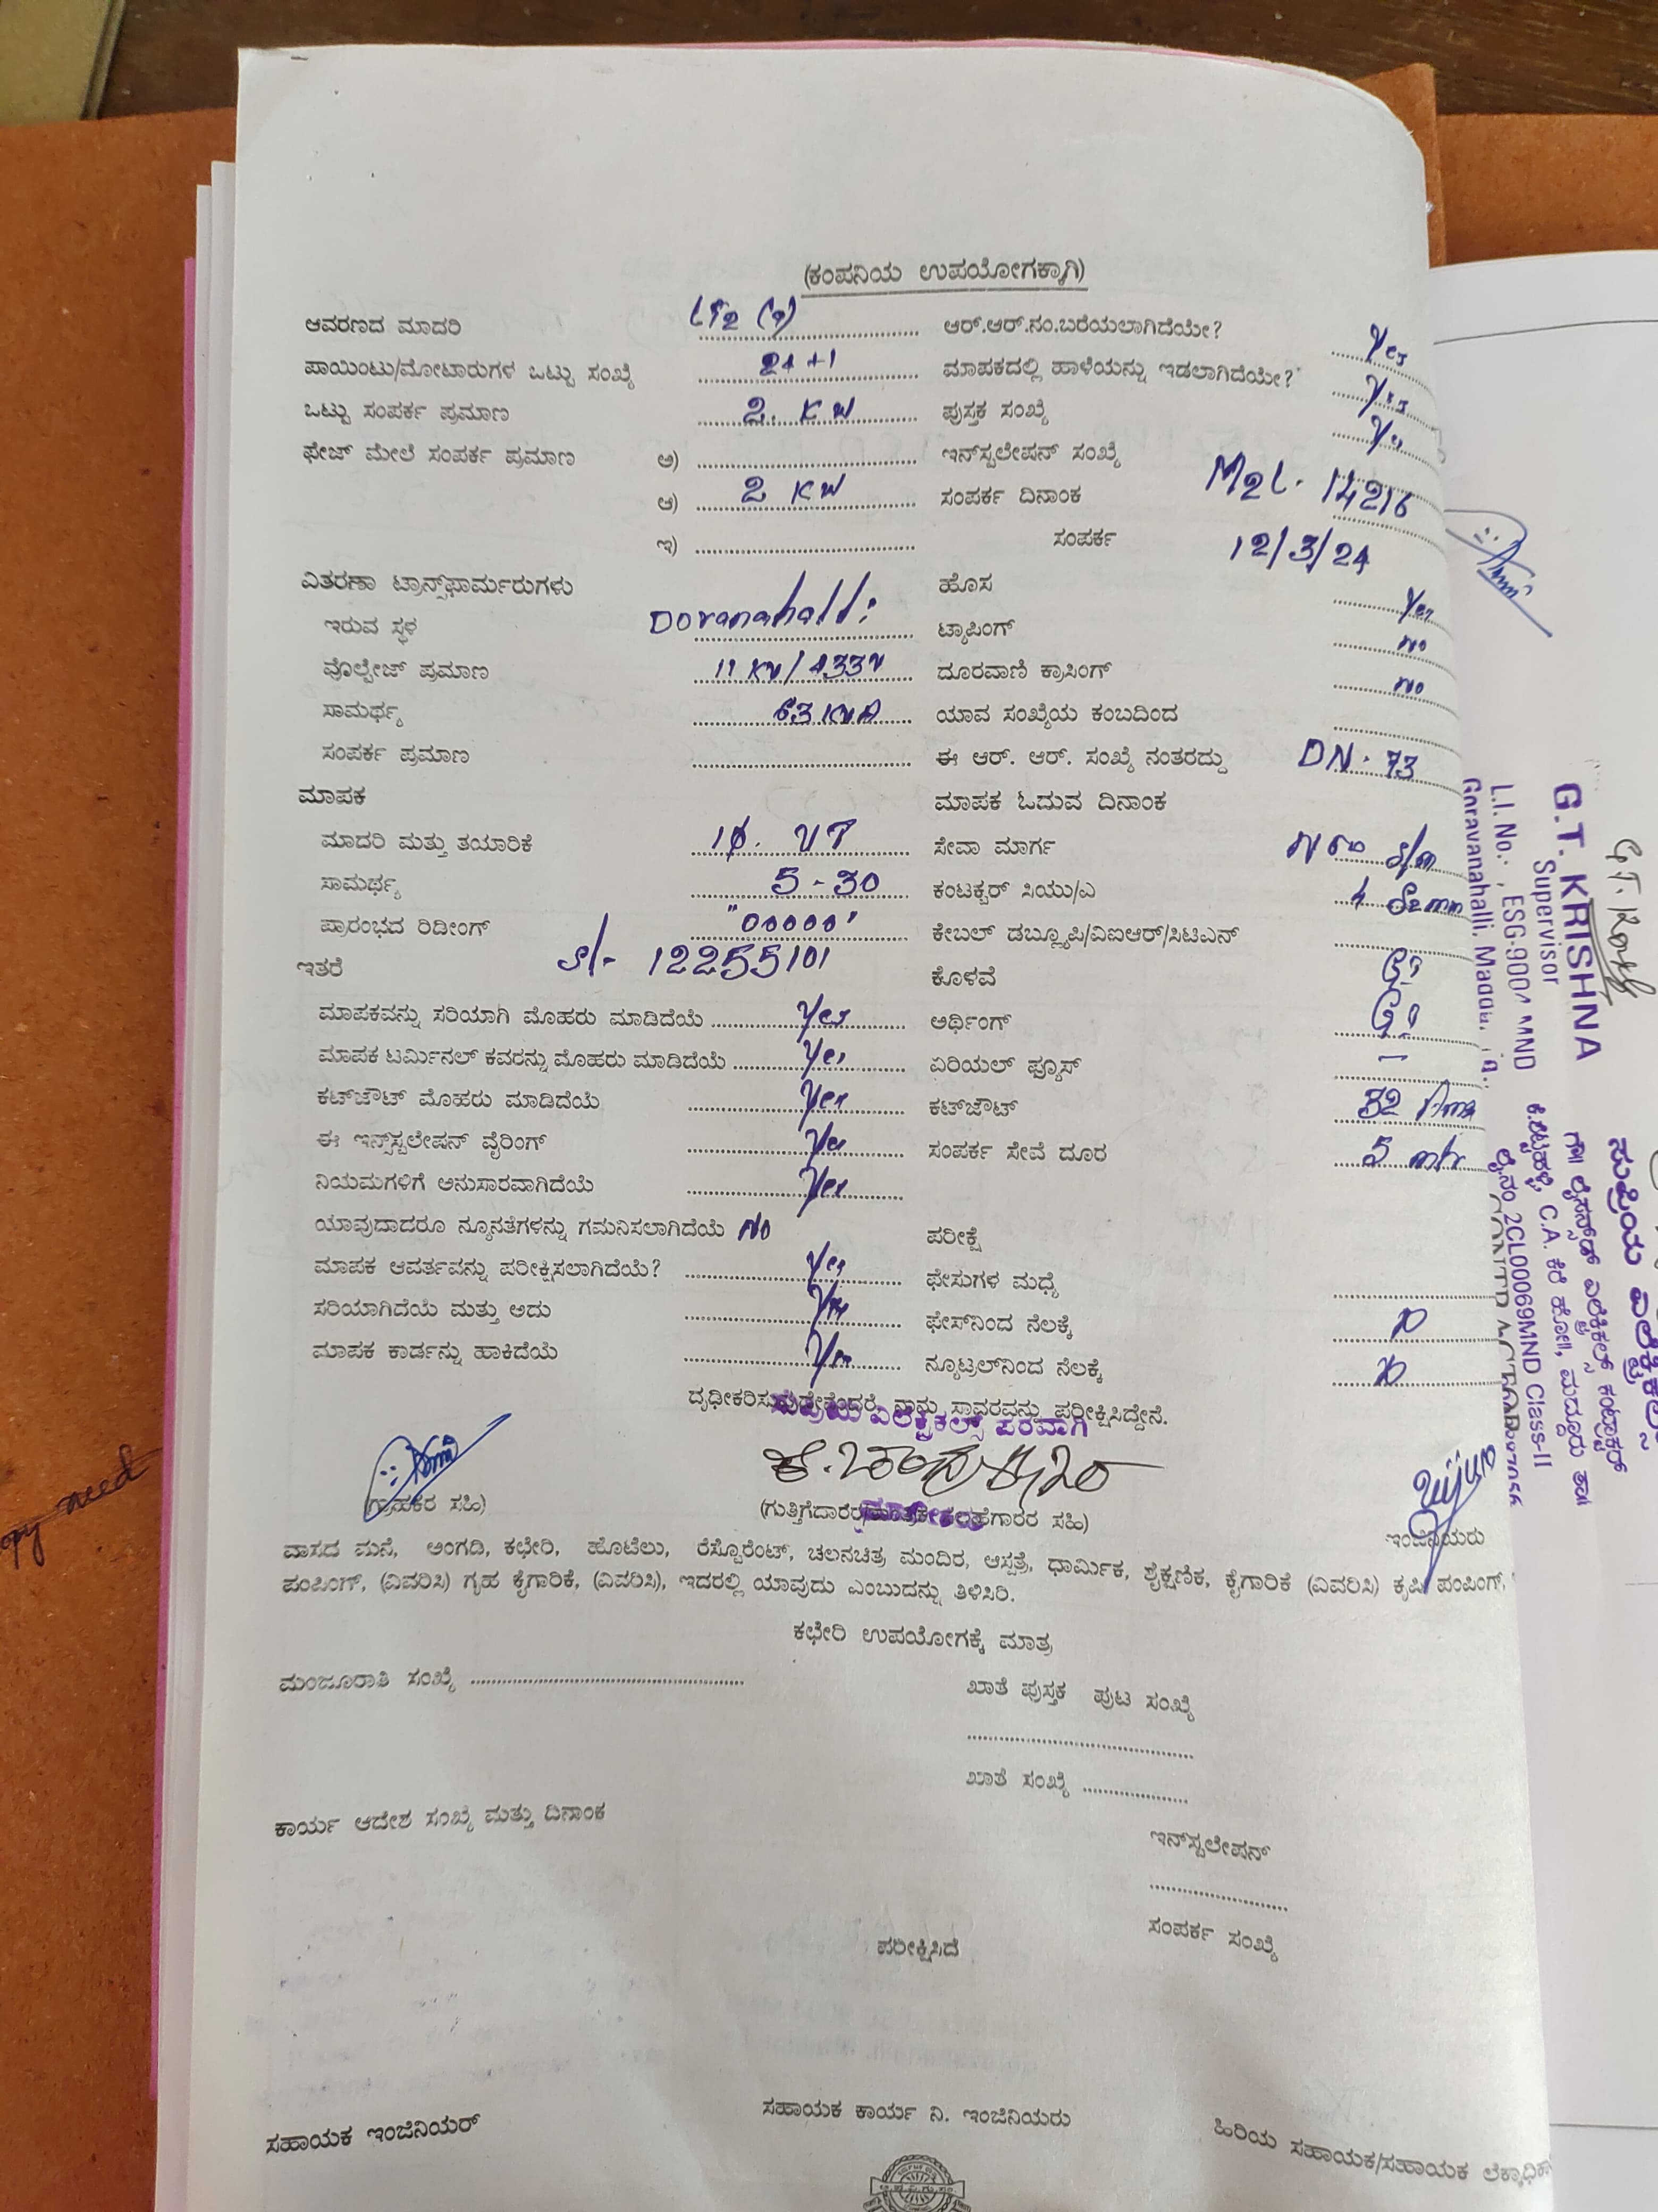 (ಕಂಪನಿಯ ಉಪಯೋಗಕ್ಕಾಗಿ)
ಆವರಣದ ಮಾದರಿ ಆರ್.ಆರ್.ನಂ.ಬರೆಯಲಾಗಿದೆಯೇ? Yes
ಪಾಯಿಂಟು/ಮೋಟಾರುಗಳ ಒಟ್ಟು ಸಂಖ್ಯೆ 24+1 ಮಾಪಕದಲ್ಲಿ ಹಾಳೆಯನ್ನು ಇಡಲಾಗಿದೆಯೇ? Yes
ಒಟ್ಟು ಸಂಪರ್ಕ ಪ್ರಮಾಣ 2. KW ಪುಸ್ತಕ ಸಂಖ್ಯೆ
ಫೇಜ್ ಮೇಲೆ ಸಂಪರ್ಕ ಪ್ರಮಾಣ ಅ) ಇನ್‌ಸ್ಟಲೇಷನ್ ಸಂಖ್ಯೆ M2L. 14216
ಆ) 2 KW ಸಂಪರ್ಕ ದಿನಾಂಕ
ಇ) ಸಂಪರ್ಕ 12/3/24
ವಿತರಣಾ ಟ್ರಾನ್ಸ್‌ಫಾರ್ಮರುಗಳು ಹೊಸ Yes
ಇರುವ ಸ್ಥಳ Doranahalli ಟ್ಯಾಪಿಂಗ್ no
ವೊಲ್ಟೇಜ್ ಪ್ರಮಾಣ 11 KV/433V ದೂರವಾಣಿ ಕ್ರಾಸಿಂಗ್ no
ಸಾಮರ್ಥ್ಯ 63 KVA ಯಾವ ಸಂಖ್ಯೆಯ ಕಂಬದಿಂದ
ಸಂಪರ್ಕ ಪ್ರಮಾಣ ಈ ಆರ್. ಆರ್. ಸಂಖ್ಯೆ ನಂತರದ್ದು DN. 73
ಮಾಪಕ ಮಾಪಕ ಓದುವ ದಿನಾಂಕ
ಮಾದರಿ ಮತ್ತು ತಯಾರಿಕೆ 1φ. ಸೇವಾ ಮಾರ್ಗ
ಸಾಮರ್ಥ್ಯ 5-30 ಕಂಟಕ್ಟರ್ ಸಿಯು/ಎ
ಪ್ರಾರಂಭದ ರಿಡೀಂಗ್ "00000" ಕೇಬಲ್ ಡಬ್ಲ್ಯೂಪಿ/ವಿಐಆರ್/ಸಿಟಿಎನ್
ಇತರೆ sl- 12255101 ಕೊಳವೆ GI
ಮಾಪಕವನ್ನು ಸರಿಯಾಗಿ ಮೊಹರು ಮಾಡಿದೆಯೆ Yes ಅರ್ಥಿಂಗ್ GI
ಮಾಪಕ ಟರ್ಮಿನಲ್ ಕವರನ್ನು ಮೊಹರು ಮಾಡಿದೆಯೆ Yes ಏರಿಯಲ್ ಫ್ಯೂಸ್ —
ಕಟ್‌ಜೌಟ್ ಮೊಹರು ಮಾಡಿದೆಯೆ Yes ಕಟ್‌ಜೌಟ್ 32
ಈ ಇನ್ಸ್‌ಸ್ಟಲೇಷನ್ ವೈರಿಂಗ್ Yes ಸಂಪರ್ಕ ಸೇವೆ ದೂರ 5 mtr
ನಿಯಮಗಳಿಗೆ ಅನುಸಾರವಾಗಿದೆಯೆ Yes
ಯಾವುದಾದರೂ ನ್ಯೂನತೆಗಳನ್ನು ಗಮನಿಸಲಾಗಿದೆಯೆ No ಪರೀಕ್ಷೆ
ಮಾಪಕ ಆವರ್ತವನ್ನು ಪರೀಕ್ಷಿಸಲಾಗಿದೆಯೆ? Yes ಫೇಸುಗಳ ಮಧ್ಯೆ
ಸರಿಯಾಗಿದೆಯೆ ಮತ್ತು ಅದು Yes ಫೇಸ್‌ನಿಂದ ನೆಲಕ್ಕೆ
ಮಾಪಕ ಕಾರ್ಡನ್ನು ಹಾಕಿದೆಯೆ Yes ನ್ಯೂಟ್ರಲ್‌ನಿಂದ ನೆಲಕ್ಕೆ
ನಾನು ಸ್ಥಾವರವನ್ನು ಪರೀಕ್ಷಿಸಿದ್ದೇನೆ.
ಸುಪ್ರಿಯ ಎಲೆಕ್ಟ್ರಿಕಲ್ಸ್ ಪರವಾಗಿ
(ಗ್ರಾಹಕರ ಸಹಿ) ಇಂಜಿನಿಯರು
ವಾಸದ ಮನೆ, ಅಂಗಡಿ, ಕಛೇರಿ, ಹೊಟೆಲು, ರೆಸ್ಟೊರೆಂಟ್, ಚಲನಚಿತ್ರ ಮಂದಿರ, ಆಸ್ಪತ್ರೆ, ಧಾರ್ಮಿಕ, ಶೈಕ್ಷಣಿಕ, ಕೈಗಾರಿಕೆ (ವಿವರಿಸಿ) ಕೃಷಿ ಪಂಪಿಂಗ್,
ಪಂಪಿಂಗ್, (ವಿವರಿಸಿ) ಗೃಹ ಕೈಗಾರಿಕೆ, (ವಿವರಿಸಿ), ಇದರಲ್ಲಿ ಯಾವುದು ಎಂಬುದನ್ನು ತಿಳಿಸಿರಿ.
ಕಛೇರಿ ಉಪಯೋಗಕ್ಕೆ ಮಾತ್ರ
ಮಂಜೂರಾತಿ ಸಂಖ್ಯೆ ಖಾತೆ ಪುಸ್ತಕ ಪುಟ ಸಂಖ್ಯೆ
ಖಾತೆ ಸಂಖ್ಯೆ
ಕಾರ್ಯ ಆದೇಶ ಸಂಖ್ಯೆ ಮತ್ತು ದಿನಾಂಕ
ಇನ್‌ಸ್ಟಲೇಷನ್
ಸಂಪರ್ಕ ಸಂಖ್ಯೆ
ಪರೀಕ್ಷಿಸಿದೆ
ಸಹಾಯಕ ಇಂಜಿನಿಯರ್ ಸಹಾಯಕ ಕಾರ್ಯ ನಿ. ಇಂಜಿನಿಯರು ಹಿರಿಯ ಸಹಾಯಕ/ಸಹಾಯಕ
G.T. KRISHNA
Supervisor
L.I. No.: ESG-9004 MND
Goravanahalli,
ಸುಪ್ರಿಯ
C.A. ಕೆರೆ ಹೋ॥, ಮದ್ದೂರು ತಾ॥
2CL00069MND Class-II
need